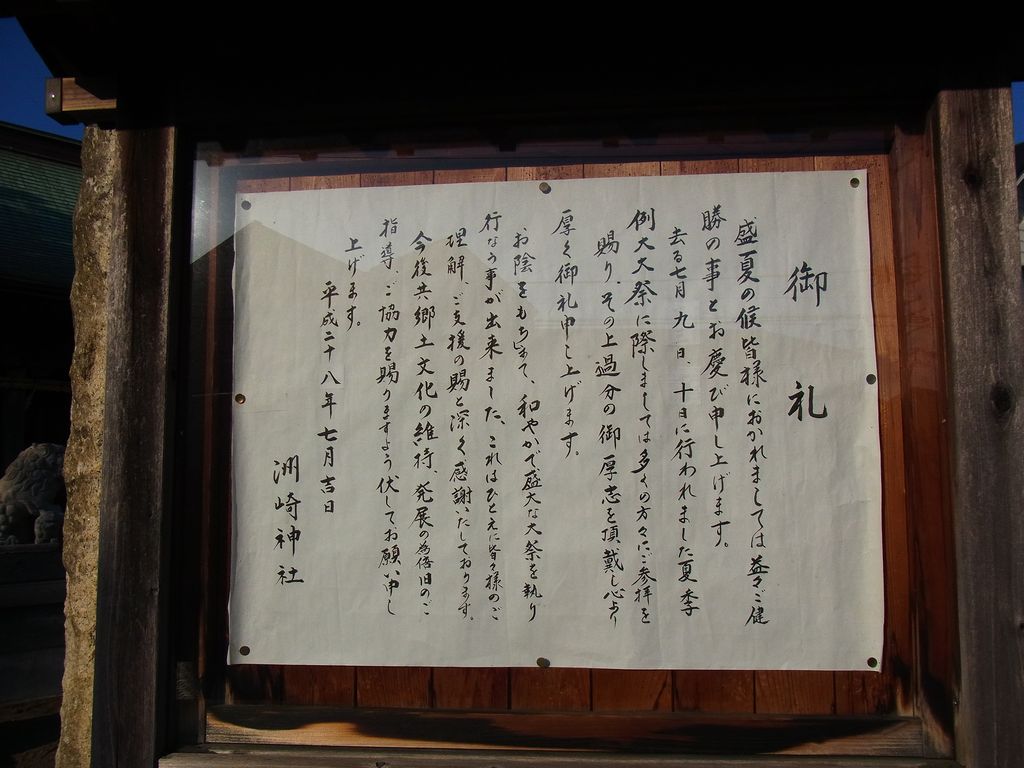 御礼
盛夏の候皆様におかれましては益々ご健
勝の事とお慶び申し上げます。
去る七月九日、十日に行われました夏季
例大大祭に際しましては多くの方々にご参拝を
賜り、その上過分の御厚志を頂戴し心より
厚く御礼申し上げます。
お陰をもちまして、和やかで盛大な大祭を執り
行なう事が出来ました、これはひとえに皆々様のご
理解、ご支援の賜と深く感謝いたしております。
今後共郷土文化の維持、発展の為倍旧のご
指導、ご協力を賜りますよう伏してお願い申し
上げます。
平成二十八年七月吉日
洲崎神社